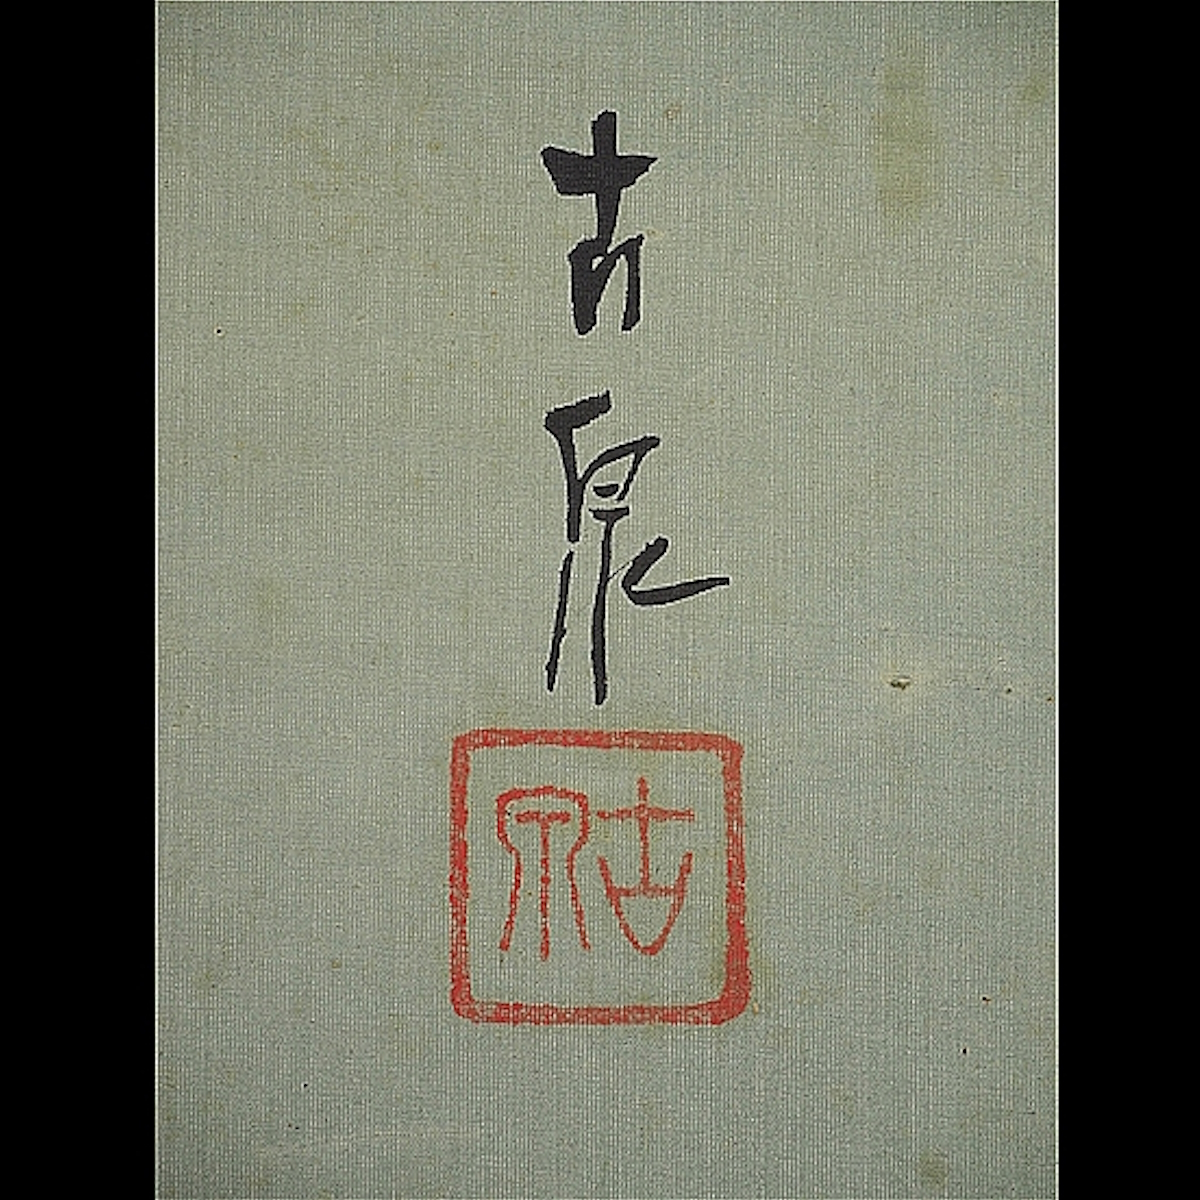 古泉
古泉